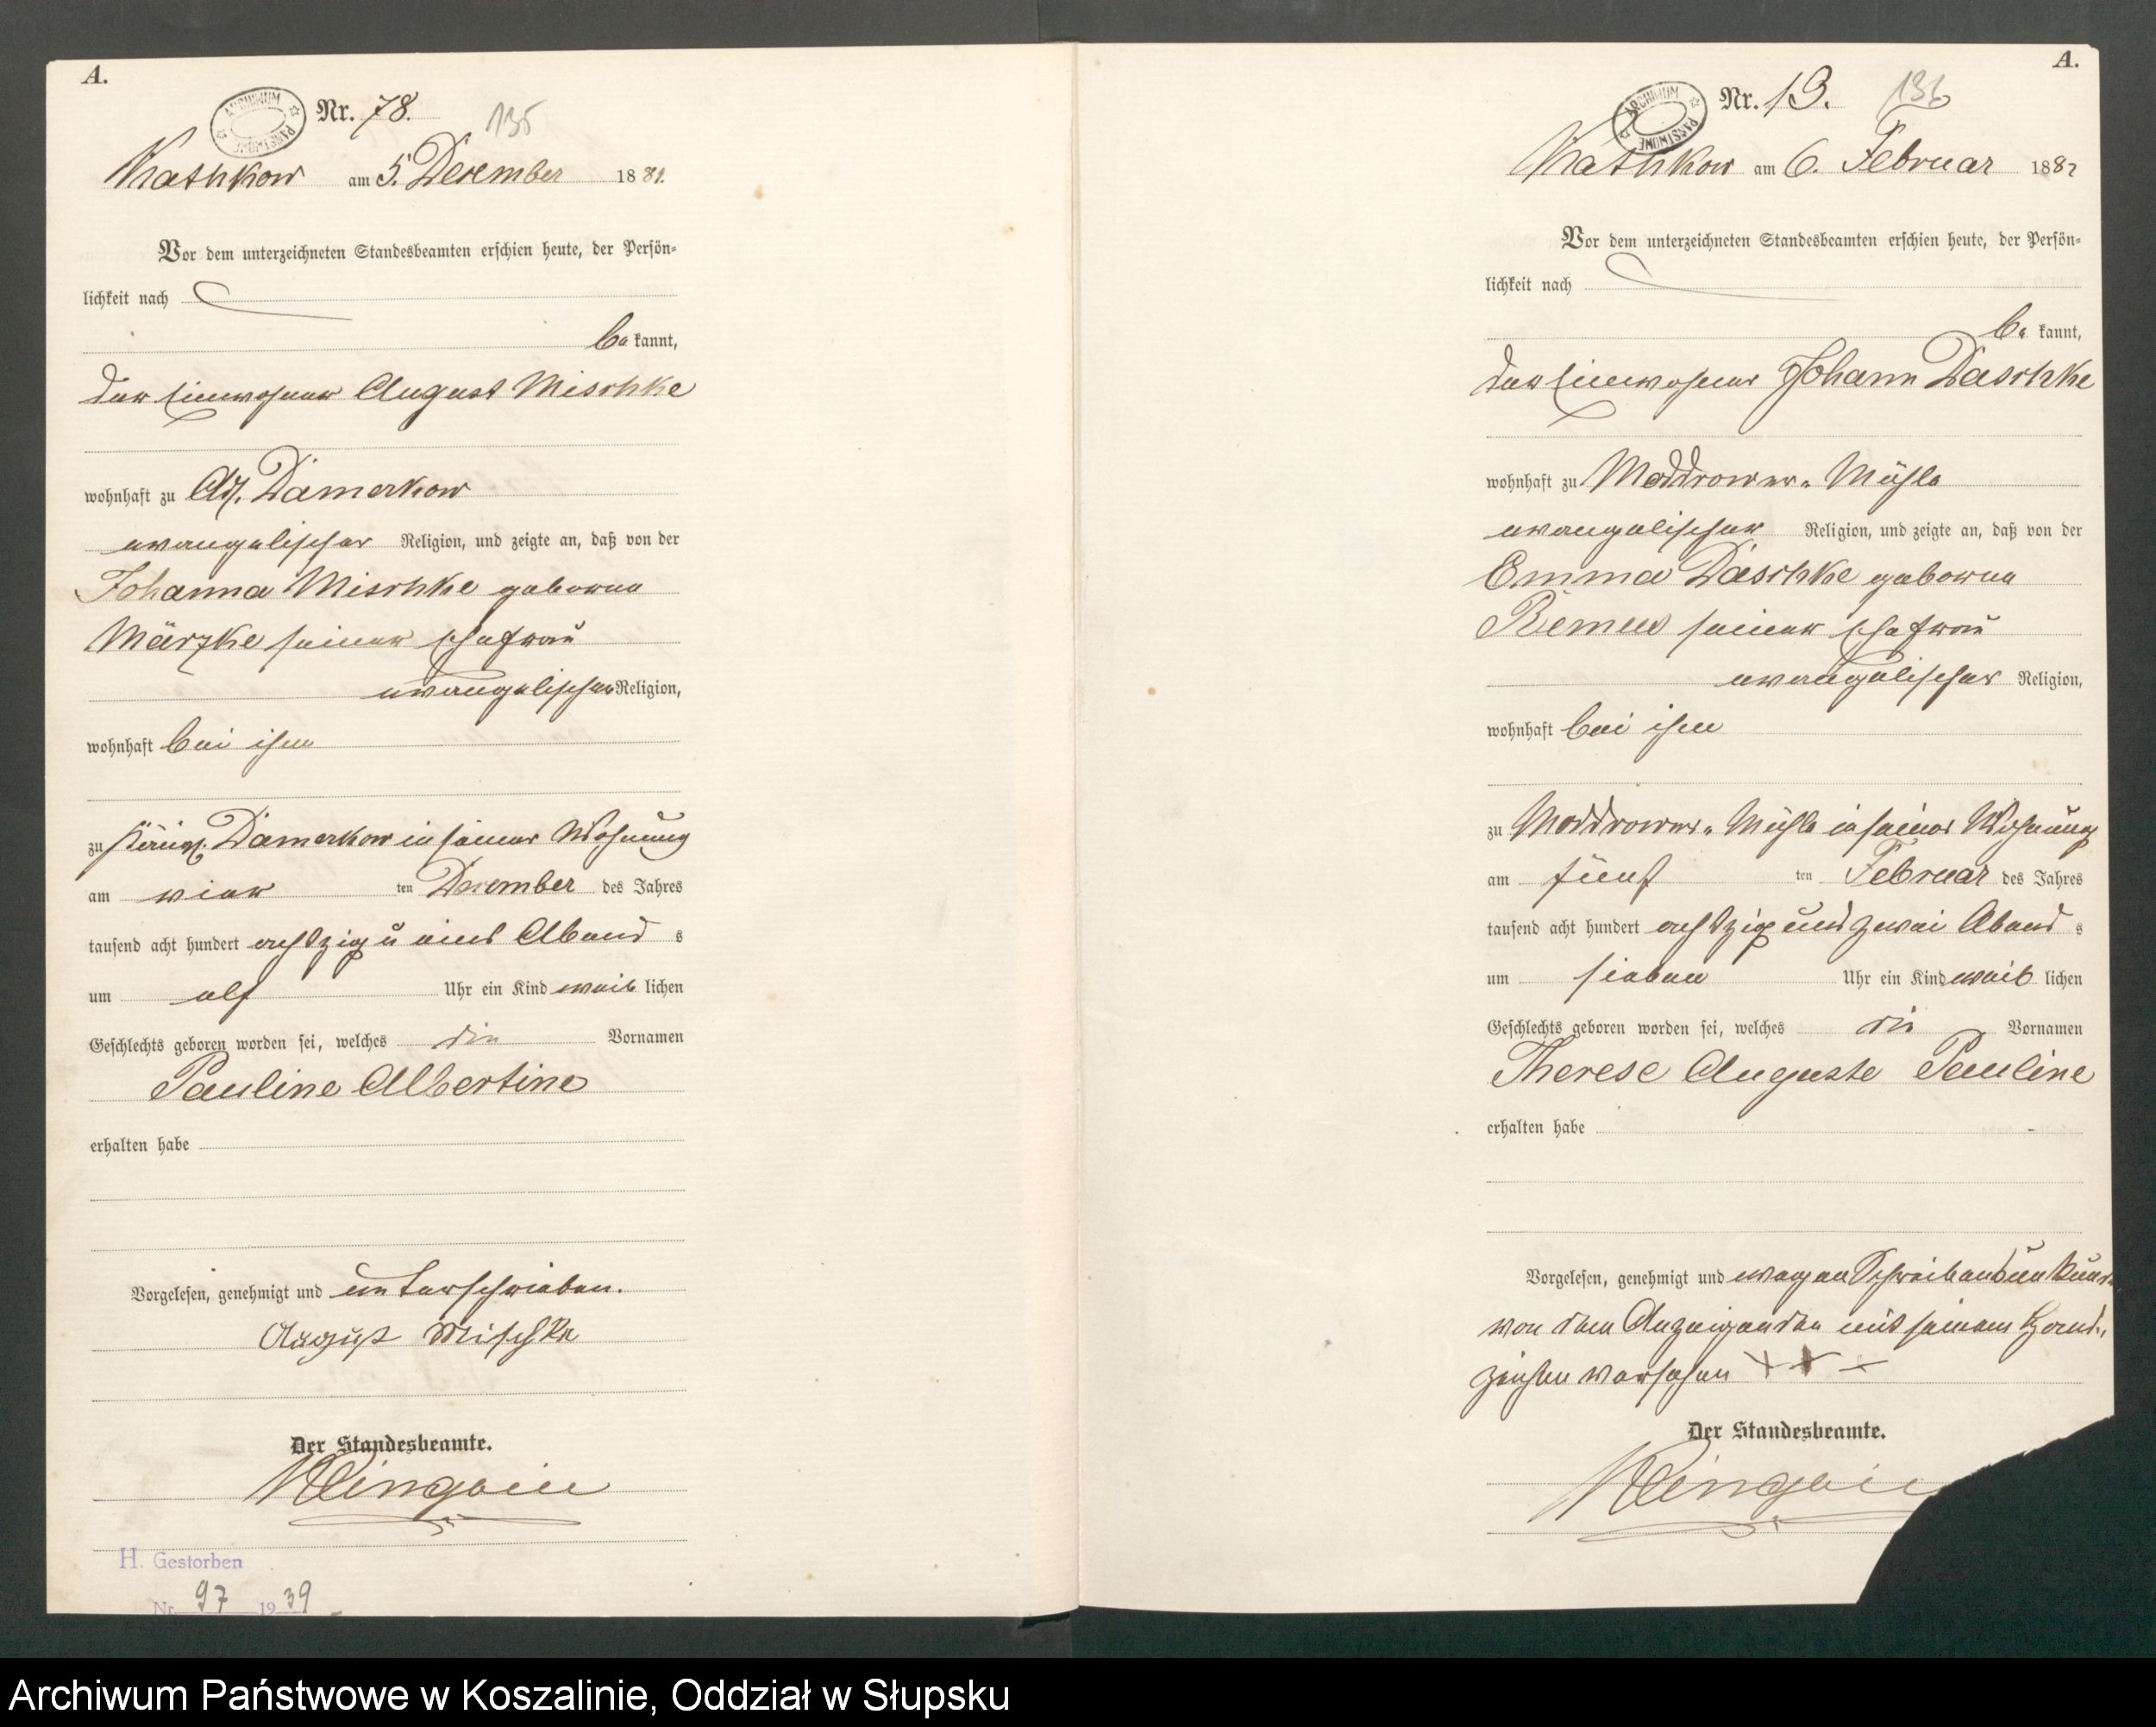 A.
ARCHIWUM PAŃSTWOWE
Nr. 78.
135
Wrathkow am 5. Dezember 1881.
Vor dem unterzeichneten Standesbeamten erschien heute, der Persön-
lichkeit nach
be kannt,
der Einwohner August Mischke
wohnhaft zu Adl. Damerkow
evangelischer Religion, und zeigte an, daß von der
Johanna Mischke geborne
Märzke seiner Ehefrau
evangelischer Religion,
wohnhaft bei ihm
zu Königl. Damerkow in seiner Wohnung
am vier ten Dezember des Jahres
tausend acht hundert achtzig u eins Abend s
um elf Uhr ein Kind weib lichen
Geschlechts geboren worden sei, welches die Vornamen
Pauline Albertine
erhalten habe
Vorgelesen, genehmigt und unterschrieben.
August Mischke
Der Standesbeamte.
H. Gestorben
Nr. 97 1939
A.
ARCHIWUM PAŃSTWOWE
Nr. 13.
136
Wrathkow am 6. Februar 1882
Vor dem unterzeichneten Standesbeamten erschien heute, der Persön-
lichkeit nach
be kannt,
der Einwohner Johann Daschke
wohnhaft zu Moddrower-Mühle
evangelischer Religion, und zeigte an, daß von der
Emma Daschke geborne
seiner Ehefrau
evangelischer Religion,
wohnhaft bei ihm
zu Moddrower-Mühle in seiner Wohnung
am fünf ten Februar des Jahres
tausend acht hundert achtzig und zwei Abend s
um sieben Uhr ein Kind weib lichen
Geschlechts geboren worden sei, welches die Vornamen
Therese Auguste Pauline
erhalten habe
Vorgelesen, genehmigt und wegen Schreibensunkunde
von dem Anzeigenden mit seinem Hand-
zeichen versehen + + +
Der Standesbeamte.
Archiwum Państwowe w Koszalinie, Oddział w Słupsku